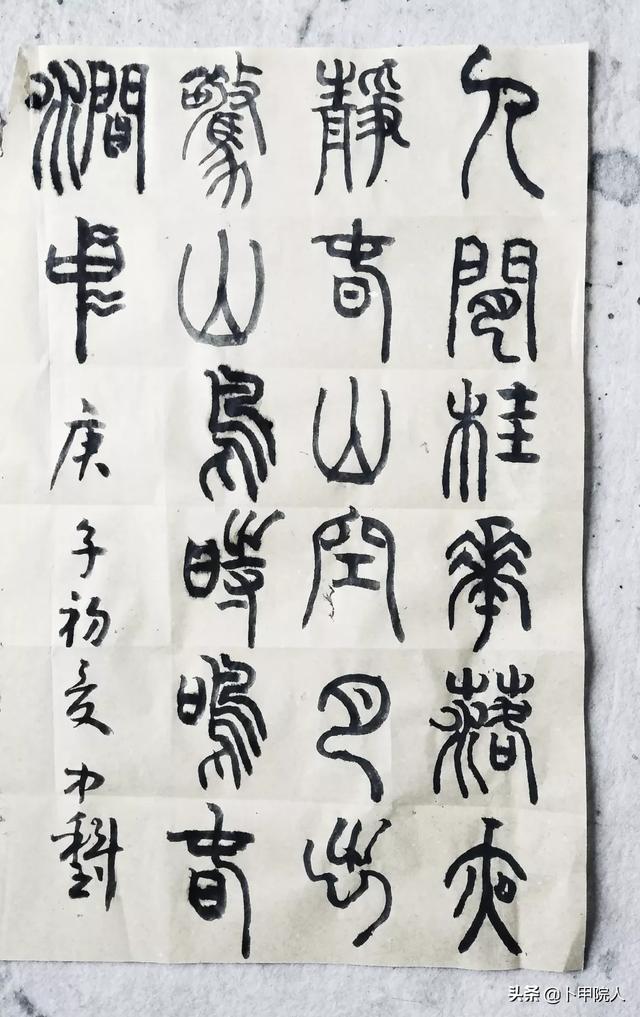 人閒桂華落夜
靜春山空月出
驚山鳥時鳴春
澗中庚子初夏
头条 @卜甲院人